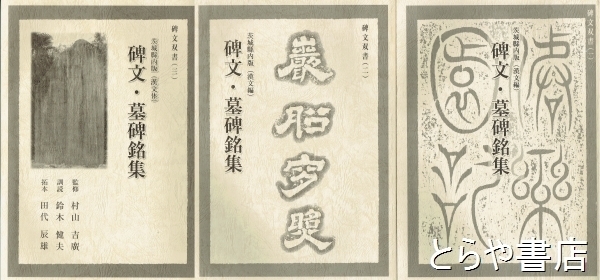 碑文双書(三)
茨城縣内版(漢文体)
碑文・墓碑銘集
監修 村山吉廣
訓読 鈴木健夫
拓本 田代辰雄
碑文双書(二)
茨城縣内版(漢文編)
碑文・墓碑銘集
碑文双書(一)
茨城縣内版(漢文編)
碑文・墓碑銘集
とらや書店